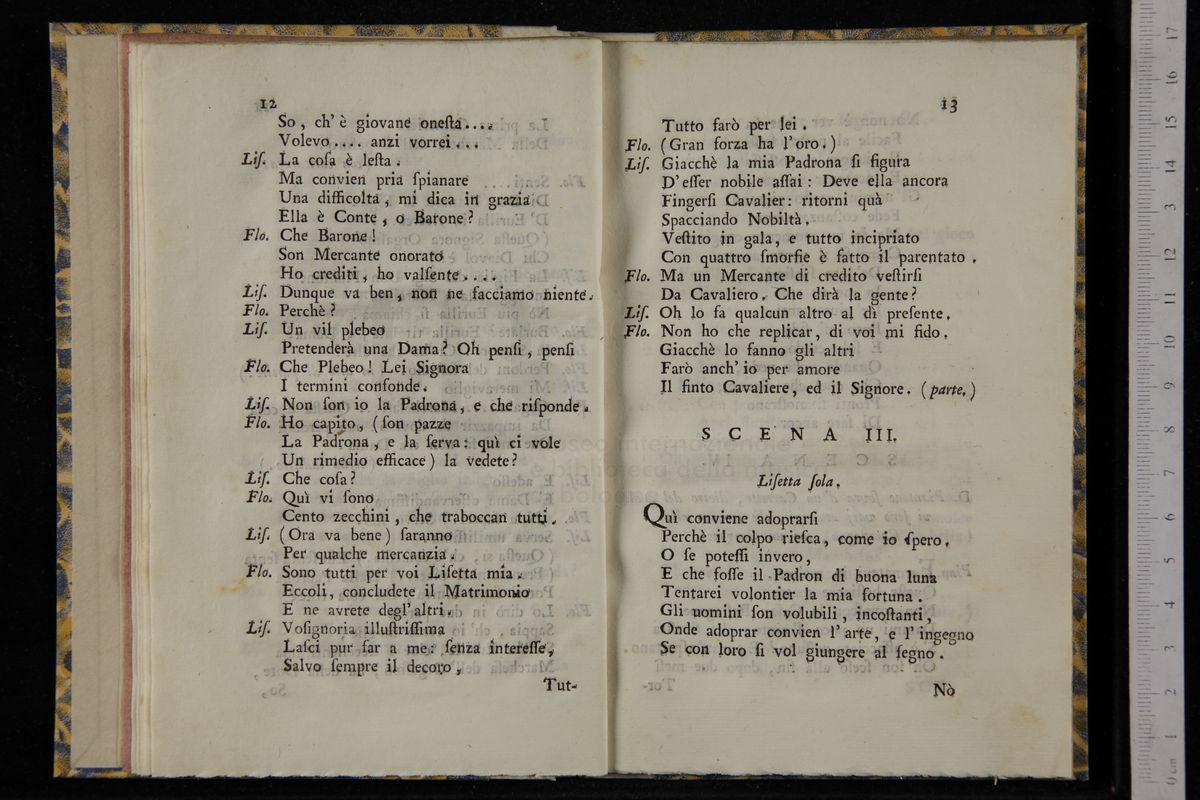 12
So, ch' è giovane oneſta....
Volevo.... anzi vorrei...
Liſ. La coſa è leſta.
Ma convien pria ſpianare
Una difficolta, mi dica in grazia
Ella è Conte, o Barone?
Flo. Che Barone!
Son Mercante onorato
Ho crediti, ho valſente....
Liſ. Dunque va ben, non ne facciamo niente.
Flo. Perchè?
Liſ. Un vil plebeo
Pretenderà una Dama? Oh penſi, penſi
Flo. Che Plebeo! Lei Signora
I termini confonde.
Liſ. Non ſon io la Padrona, e che riſponde.
Flo. Ho capito, (ſon pazze
La Padrona, e la ſerva: quì ci vole
Un rimedio efficace) la vedete?
Liſ. Che coſa?
Flo. Quì vi ſono
Cento zecchini, che traboccan tutti.
Liſ. (Ora va bene) ſaranno
Per qualche mercanzia.
Flo. Sono tutti per voi Liſetta mia.
Eccoli, concludete il Matrimonio
E ne avrete degl' altri.
Liſ. Voſignoria illuſtriſſima
Laſci pur far a me: ſenza intereſſe,
Salvo ſempre il decoro,
Tut-
13
Tutto farò per lei.
Flo. (Gran forza ha l'oro.)
Liſ. Giacchè la mia Padrona ſi figura
D'eſſer nobile aſſai: Deve ella ancora
Fingerſi Cavalier: ritorni quà
Spacciando Nobiltà.
Veſtito in gala, e tutto incipriato
Con quattro ſmorfie è fatto il parentato.
Flo. Ma un Mercante di credito veſtirſi
Da Cavaliero. Che dirà la gente?
Liſ. Oh lo fa qualcun altro al dì preſente.
Flo. Non ho che replicar, di voi mi fido.
Giacchè lo fanno gli altri
Farò anch' io per amore
Il finto Cavaliere, ed il Signore. (parte.)
SCENA III.
Liſetta ſola.
Quì conviene adoprarſi
Perchè il colpo rieſca, come io ſpero.
O ſe poteſſi invero,
E che foſſe il Padron di buona luna
Tentarei volontier la mia fortuna.
Gli uomini ſon volubili, incoſtanti,
Onde adoprar convien l'arte, e l'ingegno
Se con loro ſi vol giungere al ſegno.
Nò